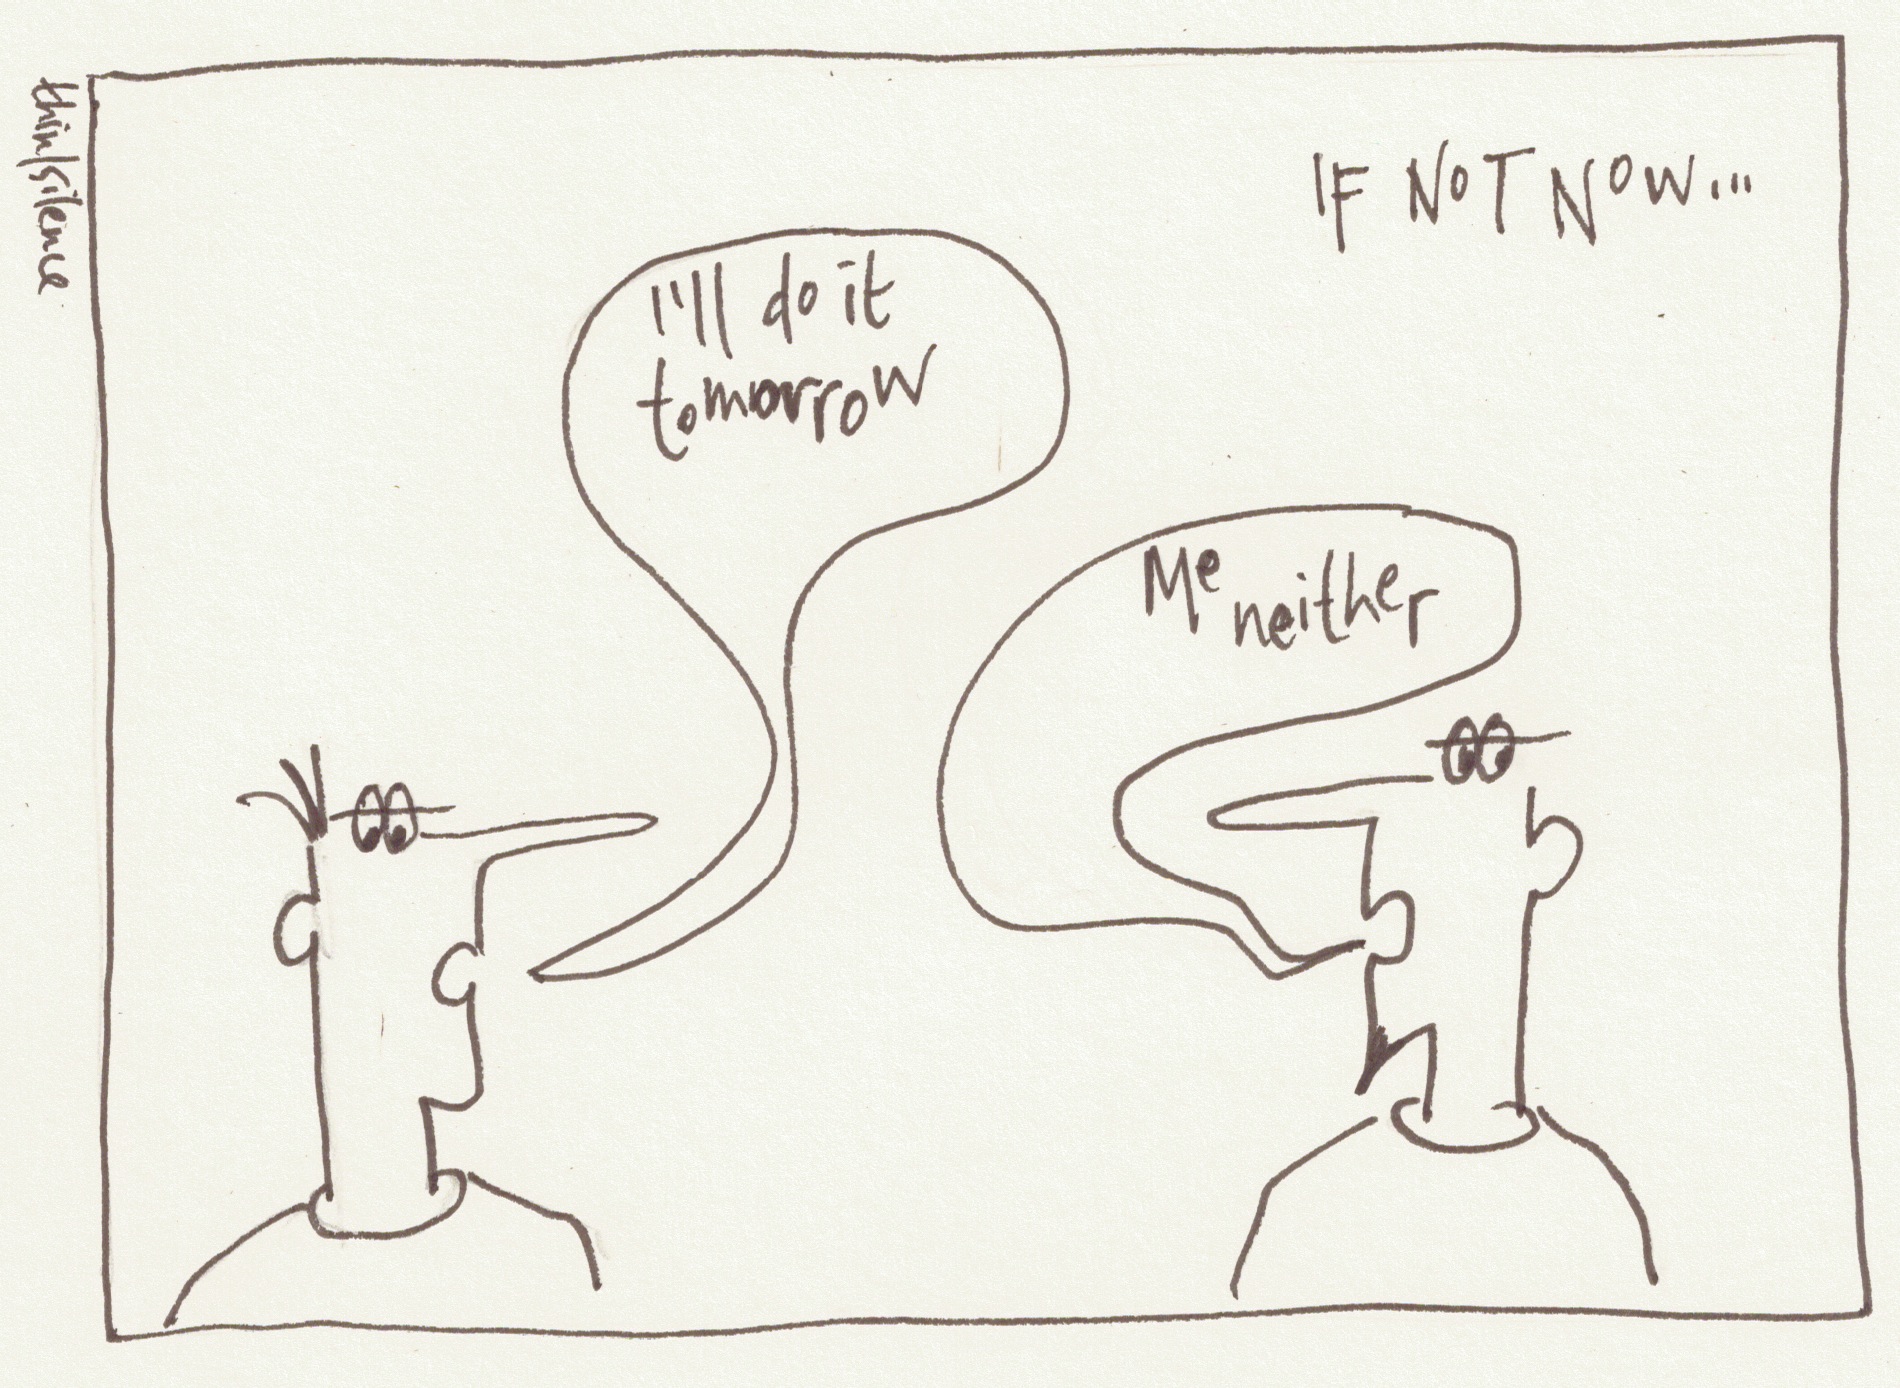 thin/silence
IF NOT NOW...
I'll do it
tomorrow
Me neither